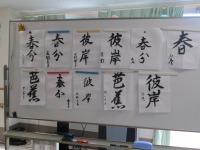 春分
春分
彼岸
彼岸
春分
春
芭蕉
春分
彼岸
芭蕉
彼岸